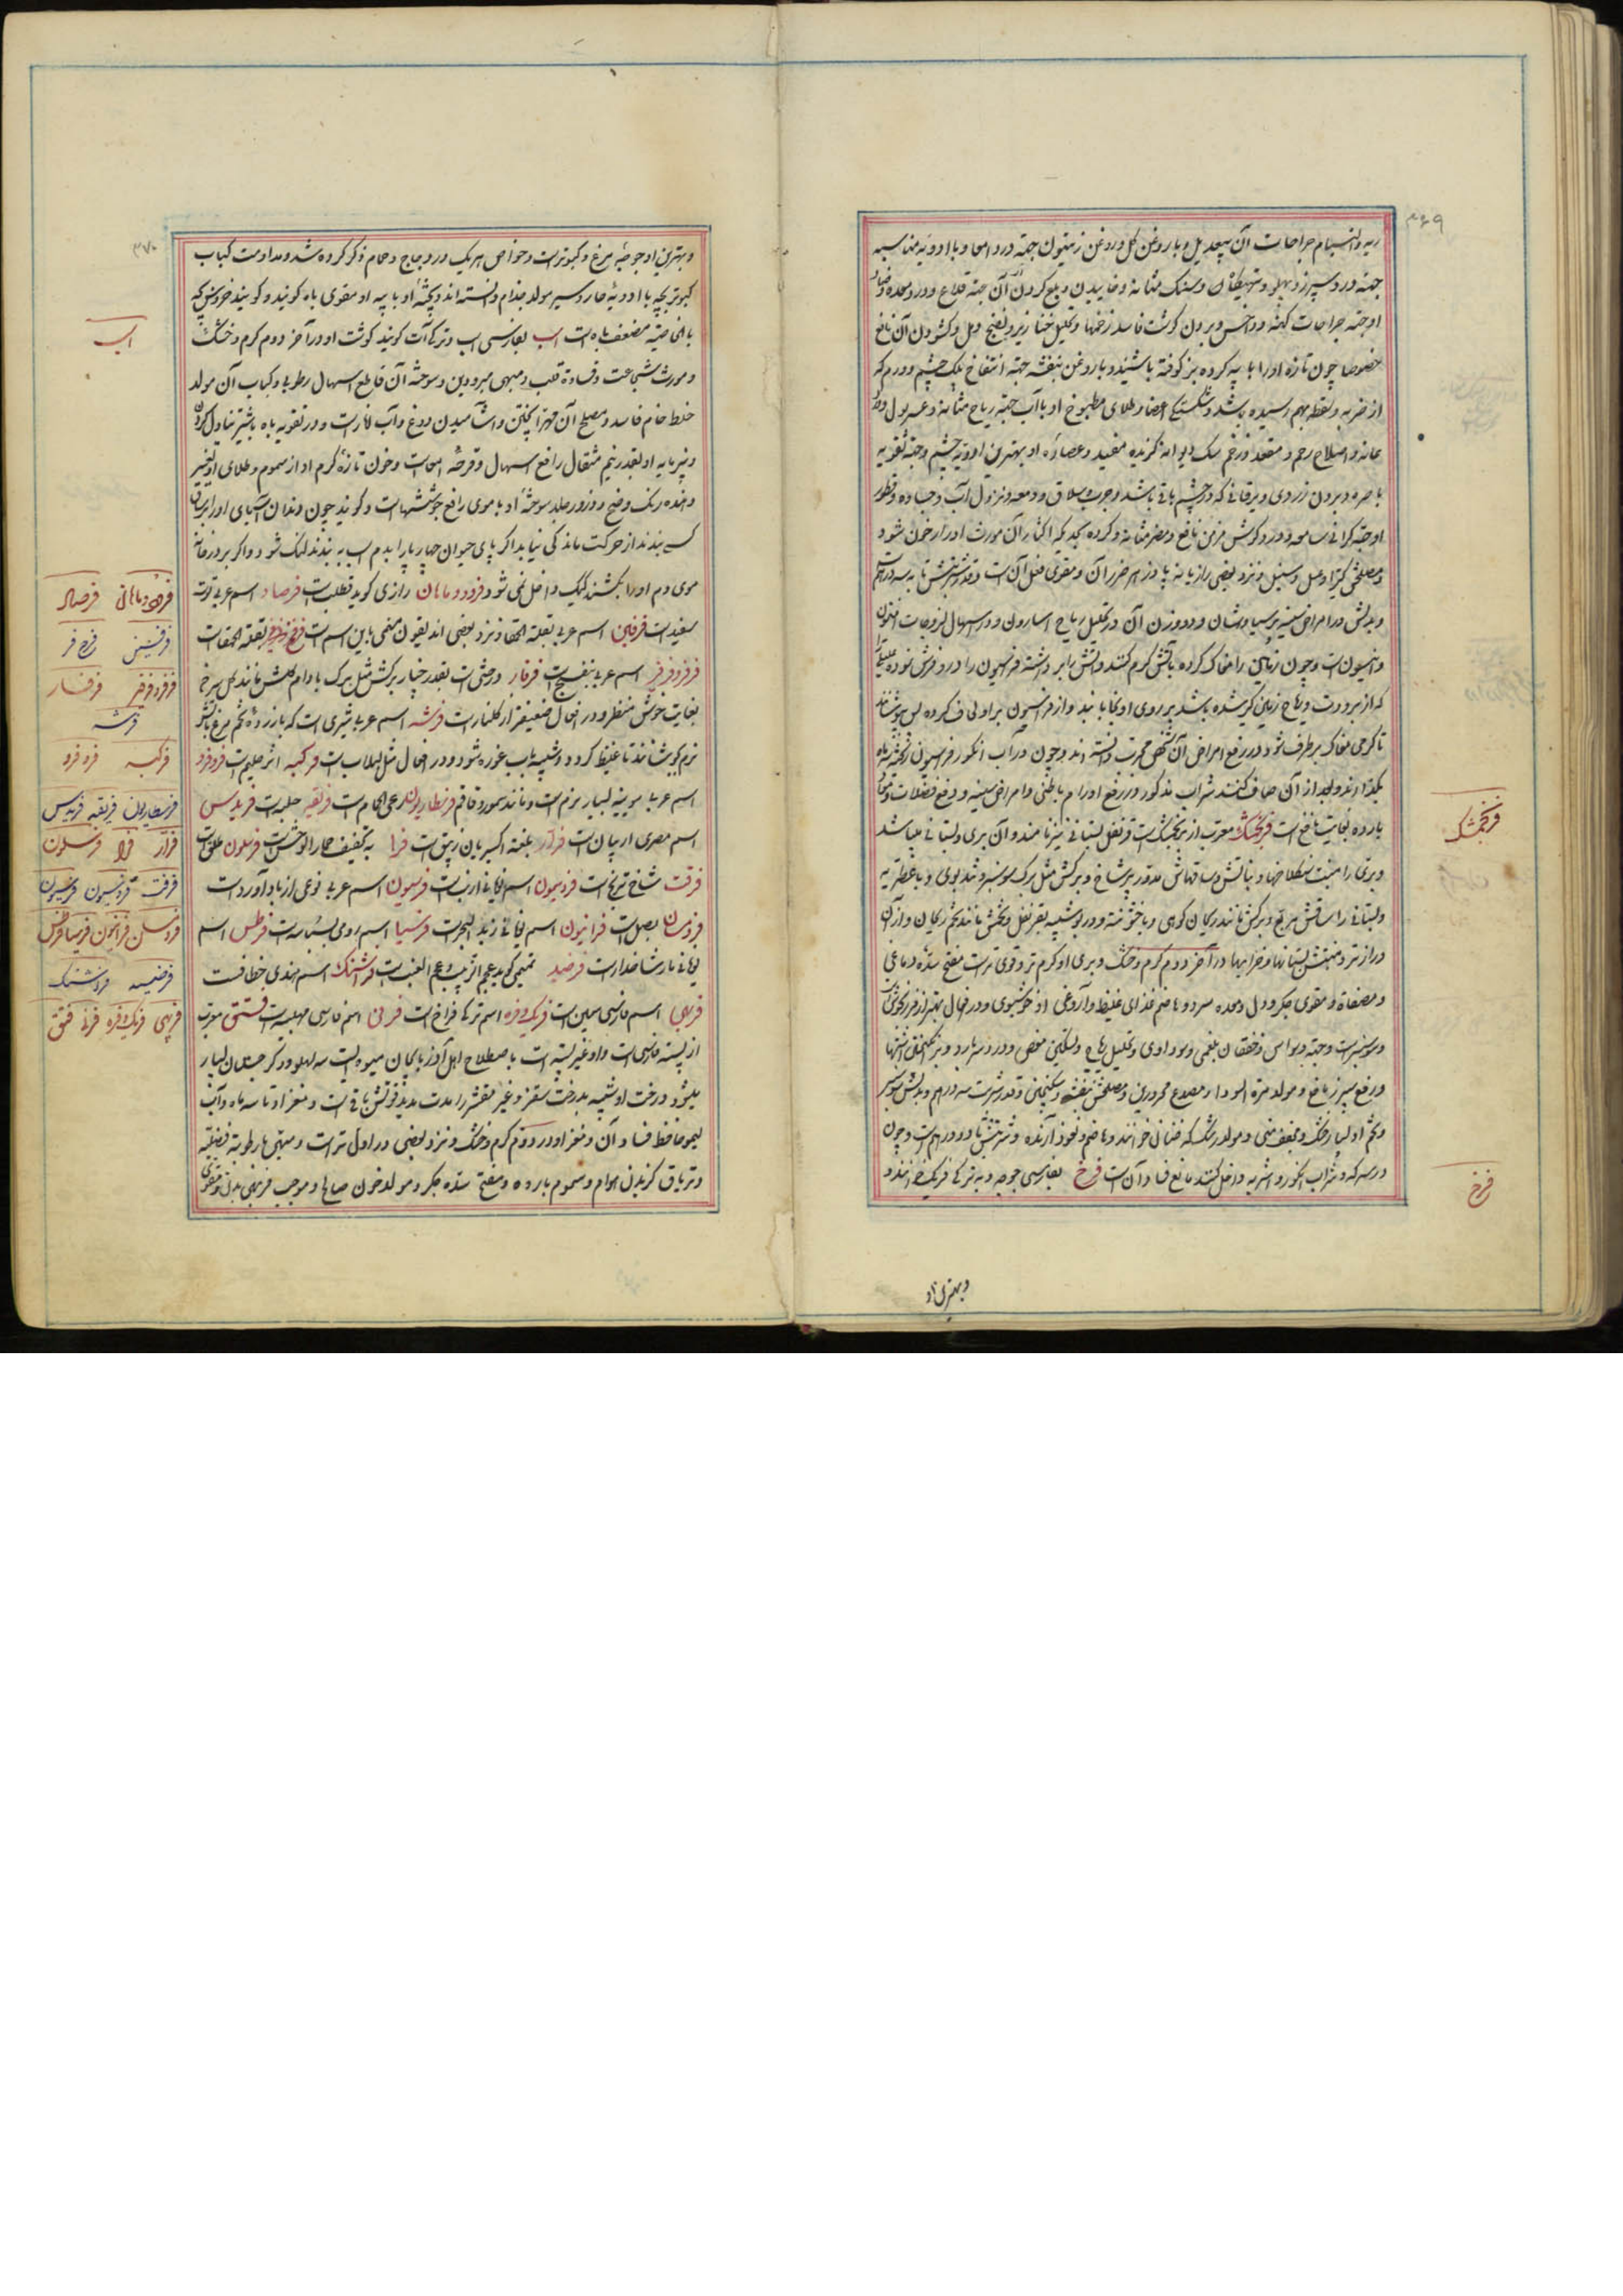 ۳۶۹
ریه و التیام جراحات آن بیعدیل و با روغن گل و روغن زیتون جهة درد امعا و با ادویه مناسبه
جهة درد سپرز و پهلو و سنک مثانه و خاییدن و بلع کردن آن جهة قلاع و درد معده و ضماد
او جهة جراحات کهنه و داحس و بردن کوشت فاسد زخمها و تحلیل خنازیر و نضج دمل و کشودن آن نافع
خصوصا چون تازه او را با پیه کرده بز کوفته باشند و با روغن بنفشه جهة انتفاخ پلک چشم و ورم که
از ضربه و سقطه بهم رسیده باشد و شکستکی اعضا و طلای مطبوخ او با آب جهة ریاح مثانه و عسر بول و درد
عانه و اصلاح رحم و مقعد و زخم سک دیوانه کزیده مفید و عصارۀ او بهترین ادویه چشم و جهة تقویه
باصره و بردن زردی و یرقانی که در چشم باقی باشد و جرب و سلاق و دمعه و نزول آب و جساده و قطور
او جهة کرانی سامعه و درد کوش مزمن نافع و مضر مثانه و کرده بحدیکه اکثار آن مورث ادرار خون شود
و مصلحش کتیرا و عسل و سنبل و نزد بعضی رازیانه پادزهر ضرر آن و مقوی فعل آن است و قدر شربتش تا سه درم است
و بدلش در امراض سینه پرسیاوشان و دو وزن آن در تحلیل ریاح اسارون و در اسهال لزوجات افتیمون
و انیسون است و چون زمین را مغاک کرده بآتش کرم کنند و آتش را برداشته فراسیون را در او فرش نموده
که از برودت و ریاح زمین کیر شده باشد بر روی او بخوابانند و از فراسیون بر او لحاف کرده بپوشانند
تا کرمی مغاک برطرف شود در رفع امراض آن شخص مجرب دانسته اند و چون در آب انکور فراسیون ریخته سه ماه
بکذارند و بعد از آن صاف کنند شراب مذکور در رفع اورام باطنی و امراض سینه و دفع فضلات و سموم
بارده بغایت نافع است فرنجمشک معرب از برنجمشک است و قرنفل بستانی نیز نامند و آن بری و بستانی میباشد
و بری را منبت سنکلاخها و نباتش و ساقهاش مدور پرشاخ و برکش مثل برک سوسنبر و تندبوی و با عطریه
و بستانی را ساقش مربع و برکش مانند ریحان کوهی و با خشونت و در بو شبیه بقرنفل و تخمش مانند تخم ریحان و از آن
درازتر و منبتش بستانها و خرابها در آخر دوم کرم و خشک و بری او کرم تر و قوی تر است مفتح سدۀ دماغی
و مصفاة و مقوی جکر و دل و معده سرد و هاضم غذای غلیظ و آروغ او خوشبوی و در افعال بهتر از مرزنجوش
و سوسنبر است و جهة وسواس و خفقان بلغمی و سوداوی و تحلیل ریاح و تسکین مغص و درد سر بارد و تحریک اشتها
و رفع سپرز نافع و مولد مرة السودا و مصدع محرورین و مصلحش بنفشه و سکنجبین و قدر شربت سه درهم و بدلش سوسنبر
و تخم او بسیار خشک و مجفف منی و مولد رشک که خفقان خوانند و هاضم و نعوظ آرنده و شربتش تا دو درهم است و چون
در سرکه و شراب انکور و اشربه داخل کنند مانع فساد آن است فرخ بفارسی جوجه و به ترکی فریک نامند و
فرنجمشک
فرخ
و بهترین او
۳۷۰
و بهترین او جوجۀ مرغ و کبوتر است و خواص هریک در دجاج و حمام ذکر کرده شد و مداومت کباب
کبوتر بچه با ادویۀ حاره و سیر مولد جذام دانسته اند و پختۀ او با پیه او مقوی باه کویند و کویند خوردن خون که
بالخاصیة مضعف باه است اسب بفارسی اسب و ترکی آت کویند کوشت او در آخر دوم کرم و خشک
و مورث شجاعت و قساوة قلب و مبهی مبرودین و سوختۀ آن قاطع اسهال رطوبی و کباب آن مولد
خلط خام فاسد و مصلح آن مهرا پختن و آشامیدن دوغ و آب انار است و در تقویه باه با شیر تناول کردن
و پنیر مایه او بقدر نیم مثقال رافع اسهال و قرحۀ امعا است و خون تازۀ کرم او از سموم و طلای او تغییر
دهنده رنک وضح و ذرور جلد سوختۀ او با موی رافع جوششها است و کویند چون دندان آسیای او را بر بازوی
کسی بندند از حرکت ماندکی نیابد اکر پای حیوان چهارپا را بدم اسب بندند لنک شود و اکر بر در خانه
موی دم او را بکشند کیک داخل نمی شود فرودومامان رازی کوید قطلب است فرصاد اسم عربی توت
سفید است فرفین اسم عربی بقلة الحمقا و نزد بعضی اندلیقون منفی باین اسم است فرفخ و فرفیر بقلة الحمقا است
فرفر و فرفیر اسم عربی بنفسج است فرفار درختی است بقدر چنار برکش مثل برک بادام کلش مانند کل سرخ
بغایت خوش منظر و در افعال ضعیفتر از کلنار است فرشه اسم عربی شیری است که با زردۀ تخم مرغ بآتش
نرم بجوشانند تا غلیظ کردد و شبیه باب غوره شود و در افعال مثل لبلاب است فرکیه اثر حلیم است فرو فرو
اسم عربی پوستینه بسیار نرم است و مانند سمور و قاقم فرسطاریون رعی الحمام است فریقه حلبه است فریدس
اسم مصری اربیان است فرار بلغة اکسیریان زیبق است فرا به تخفیف حمار الوحش است فرسلون طلق است
فرفت شاخ ترنج است فردیسون اسم یونانی ارنب است فرسیون اسم عربی نوعی از باد آورد است
فردسان بصل است فرانیون اسم یونانی زبد البحر است فرسیا اسم رومی بسباسه است فرطس اسم
یونانی مارشاخدار است فرضید تمیمی کوید عجم الزبیب و عجم العنب است فرشنک اسم هندی خطاف است
فربهی اسم فارسی سمین است فرنک و فره اسم ترکی فراخ است فرنی اسم فارسی مهلبیه است فستق معرب
از پسته فارسی است و او غیر پسته است باصطلاح اهل آذربایجان میوه ایست سه پهلو و در کرجستان بسیار
میشود و درخت او شبیه بدرخت سقز و غیر مقشر را مدت مدید قوتش باقی است و مغز او تا سه ماه و آب
لیمو حافظ فساد آن و مغز او در دوم کرم و خشک و نزد بعضی در اول تر است و مبهی با رطوبة فضلیه
و تریاق کزیدن هوام و سموم بارده و مفتح سدۀ جکر و مولد خون صالح و موجب فربهی بدن و مقوی
اسب
فرودومامان فرصاد
فرفین فرفخ
فرفر و فرفیر فرفار
فرشه
فرکیه فرو فرو
فرسطاریون فریقه فریدس
فرار فرا فرسلون
فرفت فردیسون فرسیون
فرضید فرشنک
فربهی فرنک و فره فرنی فستق